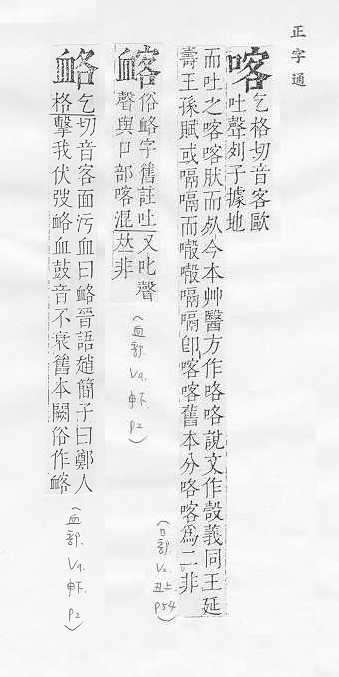 正字通
喀 乞格切音客歐
吐聲列子據地
而吐之喀喀肰而㱙今本艸醫方作咯咯說文作㱿義同王延
壽王孫賦或嗝嗝而嗀嗀嗝嗝卽喀喀舊本分咯喀爲二非
(口部. V2. 丑上 P54)
䘔 俗衉字舊註吐又叱聲
聲與口部喀混𠀤非
(血部. V9. 申下. P2)
衉 乞切音客面污血曰衉晉語趙簡子曰鄭人
格擊我伏弢衉血鼓音不衰舊本闕俗作䘔
(血部. V9. 申下. P2)